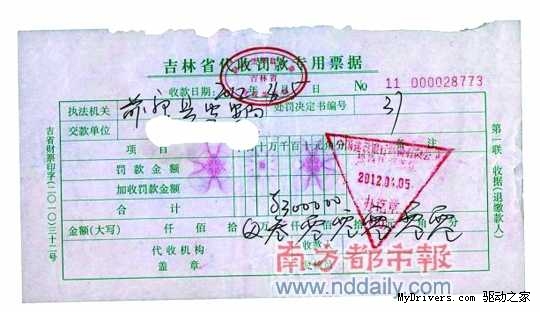 吉林省代收罚款专用票据
吉林省
收款日期: 2012年 4月 5日 No 11 000028773
执法机关 前郭县安监局 处罚决定书编号 37
交款单位
项目 十万千百十元角分
罚款金额
加收罚款金额
合计 ¥3000000
金额(大写) 仟 佰 拾 叁 零 零 零 零
代收机构 收款
盖章
2012.04.05
吉省财票印字(二〇一〇)三十二号
第一联 收据(退缴款人)
南方都市報
www.nddaily.com
MyDrivers.com 驱动之家